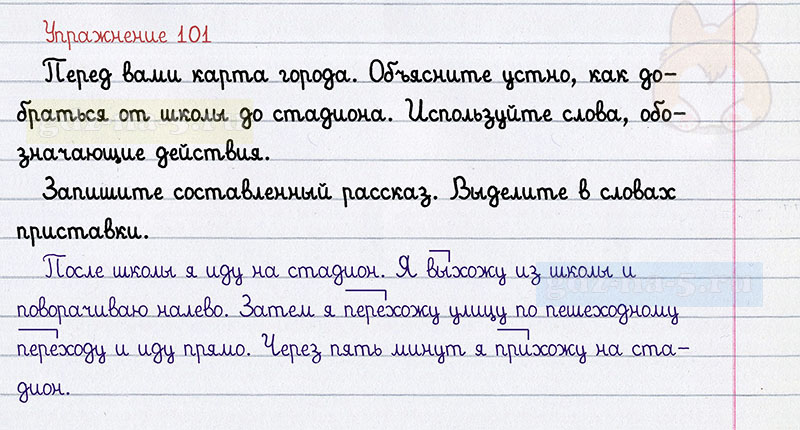 Упражнение 101
Перед вами карта города. Объясните устно, как до-
браться от школы до стадиона. Используйте слова, обо-
значающие действия.
Запишите составленный рассказ. Выделите в словах
приставки.
После школы я иду на стадион. Я выхожу из школы и
поворачиваю налево. Затем я перехожу улицу по пешеходному
переходу и иду прямо. Через пять минут я прихожу на ста-
дион.
gdz-na-5.ru
gdz-na-5.ru